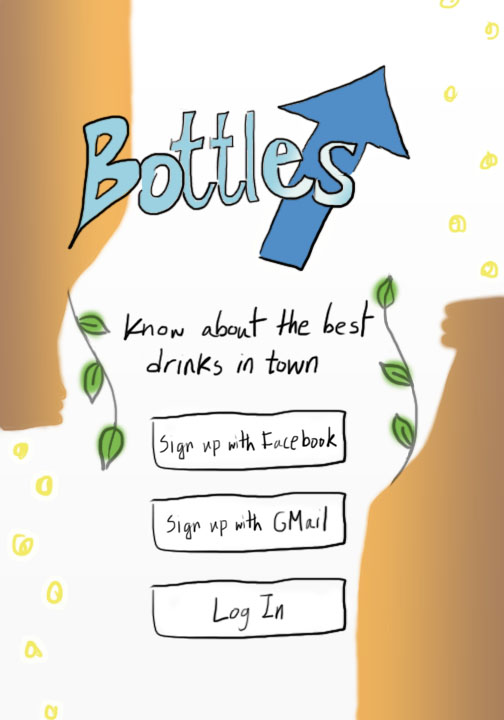 Bottles
Know about the best
drinks in town
Sign up with Facebook
Sign up with GMail
Log In